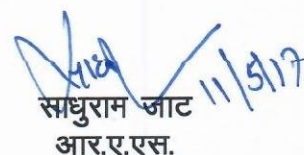 11/5/17
साधुराम जाट
आर.ए.एस.